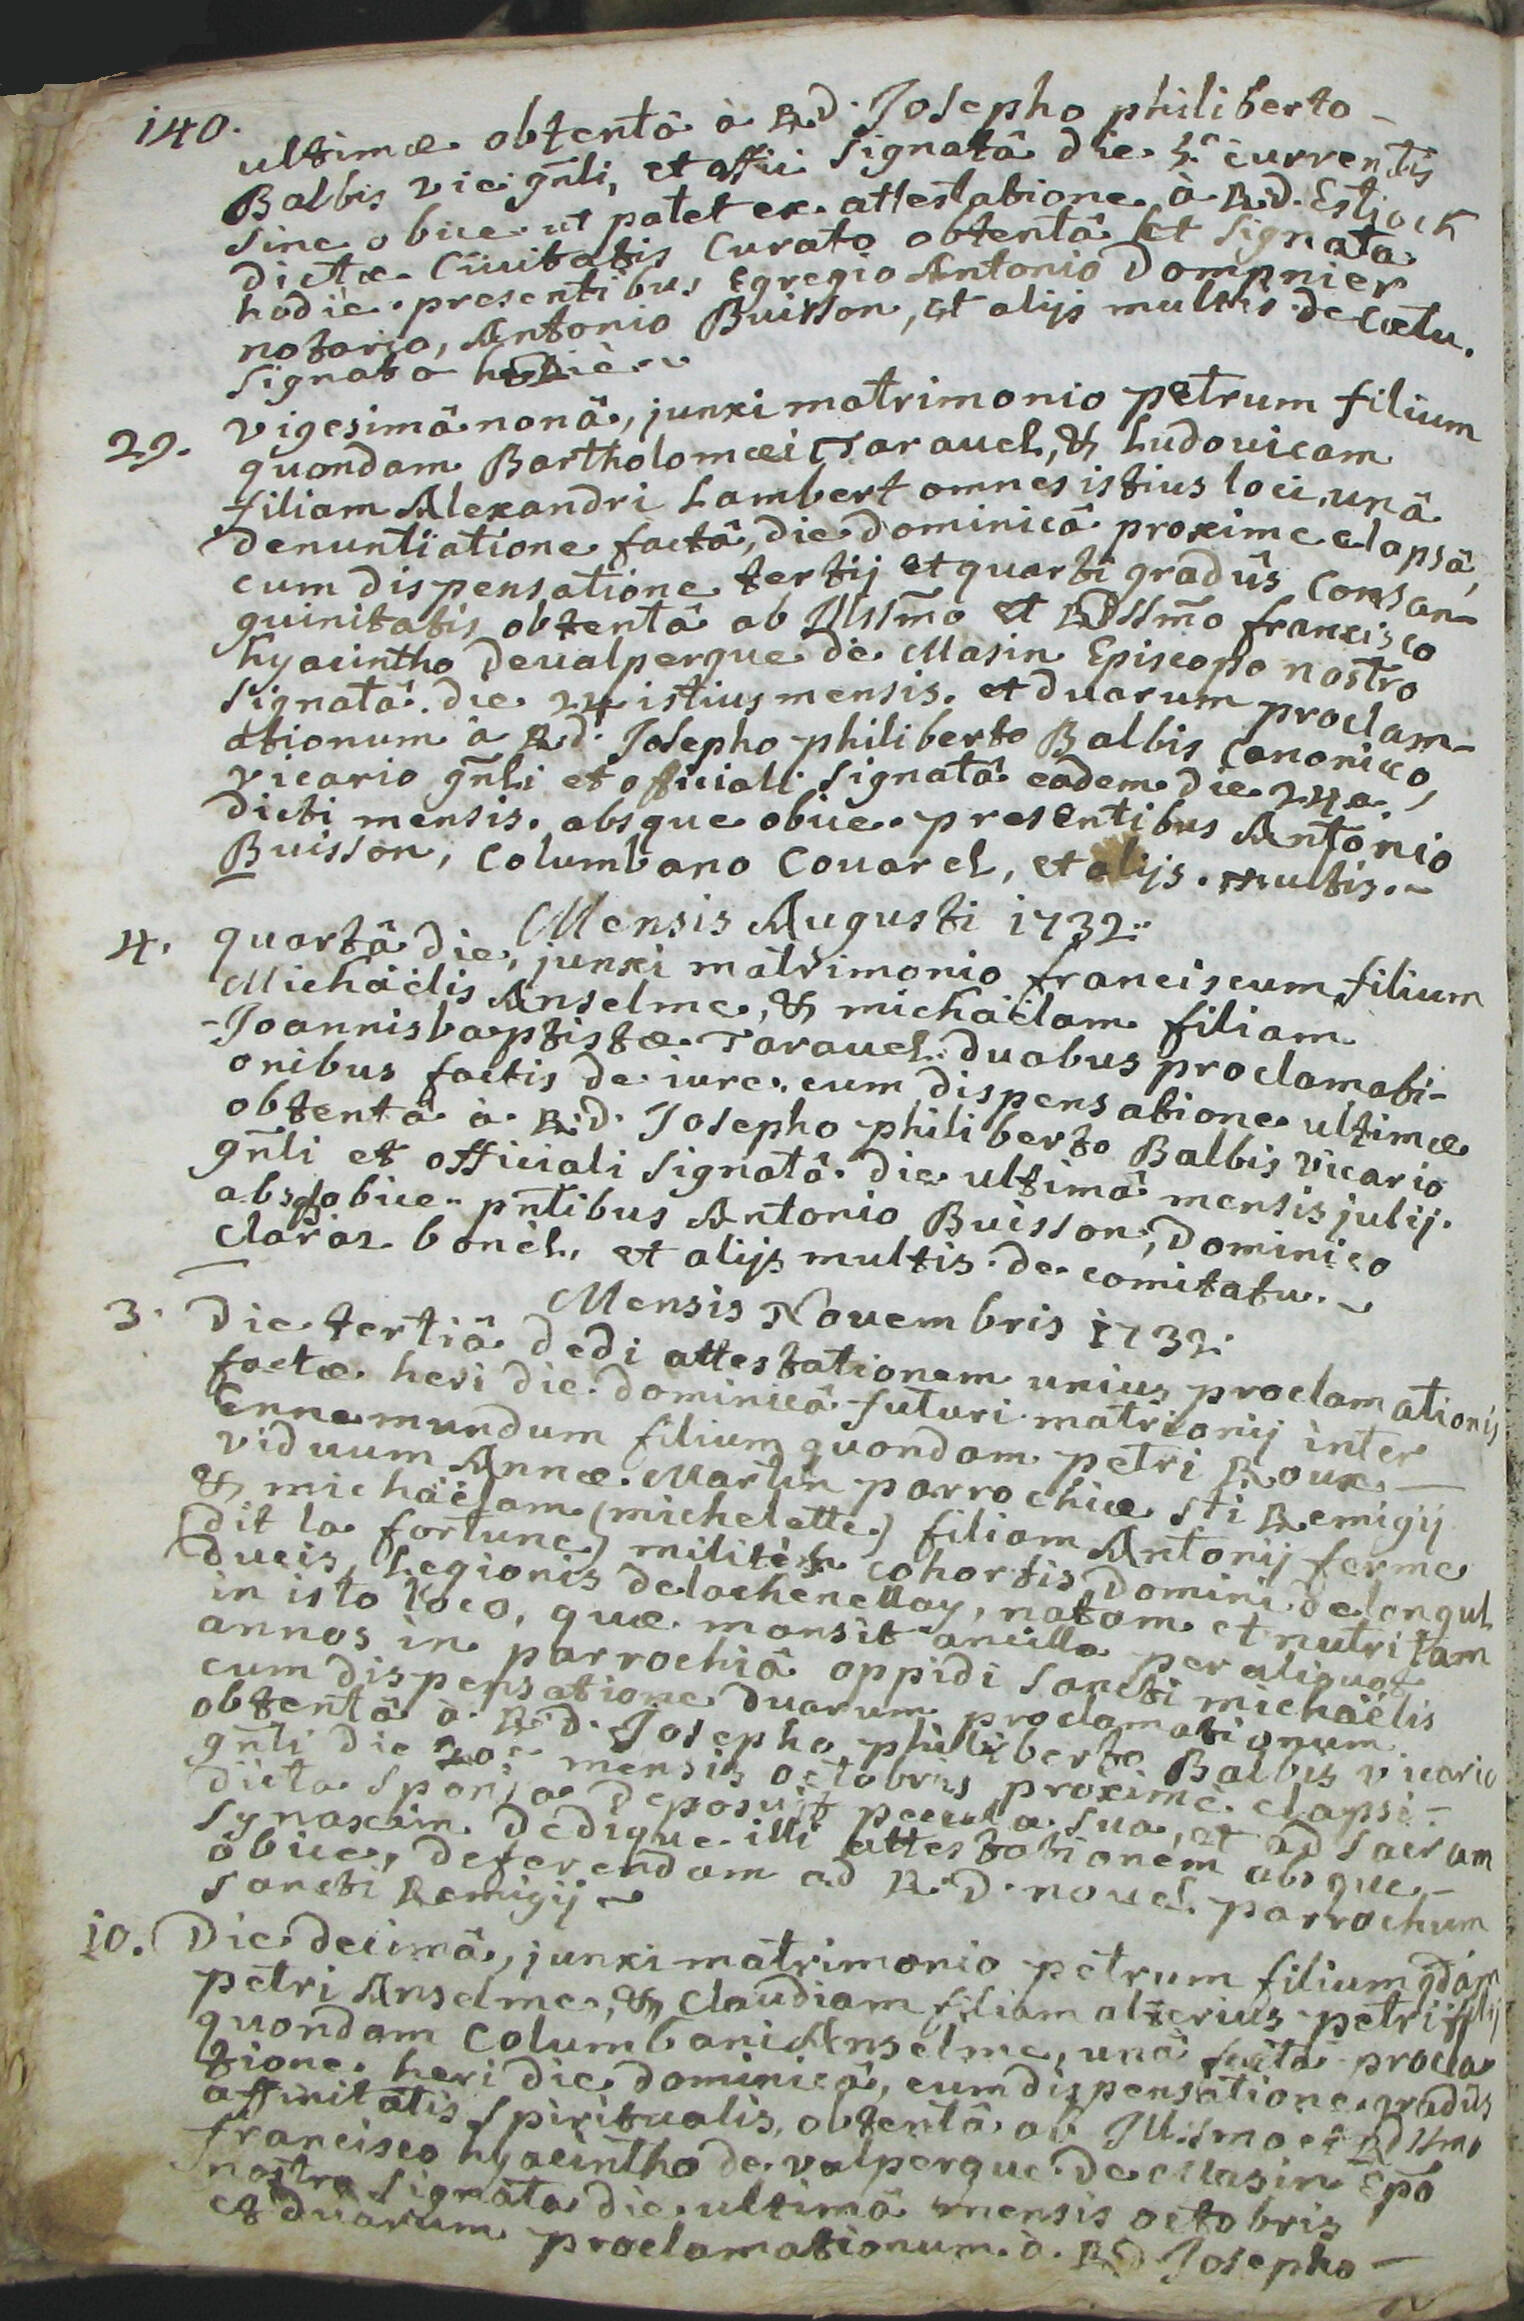 140.
ultimæ obtentâ à R.d. Josepho philiberto –
Balbis vic. gñli, et offii signatâ die 5.a currentis
sine obice ut patet ex attestatione à R.d. Estiock
dictæ Ciuitatis Curato obtentâ et signata
hodie. presentibus Egregio Antonio Dompnier
notario, Antonio Buisson, et alijs multis de cœtu.
signata hodiè.
29. vigesimâ nonâ, junxi matrimonio petrum filium
quondam Bartholomæi Tarauel, & Ludouicam
filiam Alexandri Lambert omnes istius loci, unâ
denuntiatione factâ, die dominicâ proxime elapsâ,
cum dispensatione tertij et quarti gradûs Consan-
guinitatis obtentâ ab Illssmo et Rdssmo francisco
hyacintho deualpergue de Masin Episcopo nostro
signatâ die 24 istius mensis. et duarum proclam-
ationum à R.d. Josepho philiberto Balbis Canonico,
vicario gñli et officiali signatâ eadem die 24.a
dicti mensis. absque obice. presentibus Antonio
Buisson, Columbano Couarel, et alijs. multis. ~
Mensis Augusti 1732.
4. quartâ die, junxi matrimonio franciscum filium
Michäelis Anselme, & michäelam filiam
Joannisbaptistæ Tarauel. duabus proclamati-
onibus factis de iure. cum dispensatione ultimæ
obtentâ à R.d. Josepho philiberto Balbis vicario
gñli et officiali signatâ die ultimâ mensis julij.
absq obice. pñtibus Antonio Buisson, Dominico
Claraz bonel, et alijs multis de comitatu. ~
Mensis Nouembris 1732.
3. Die tertiâ dedi attestationem unius proclamationis
factæ heri die dominicâ futuri matrionij inter
Ennemundum filium quondam petri Roux –
viduum Annæ Martin parrochiæ sti Remigij
& michäelam (michelette) filiam Antonij ferme
(dit la fortune) cohortis Domini delongul
ducis, Legionis delachenellay, natam et nutritam
in isto loco, quæ mansit ancilla per aliquot
annos in parrochiâ oppidi sancti michäelis
cum dispensatione duarum proclamationum
obtentâ à R.d. Josepho philiberto Balbis vicario
gñli die 20.a mensis octobris proximè elapsi –
dicta sponsa deposuit peccata sua, et ad sacram
synaxim. dedique illi attestationem absque –
obice, deferendam ad R.D. nouel parrochum
sancti Remigij ~
10. Die decimâ, junxi matrimonio petrum filium qdam
petri Anselme, & Claudiam filiam alterius petri filij
quondam Columbani Anselme, unâ factâ procla
tione heri die dominicâ, cum dispensatione gradûs
affinitatis spiritualis, obtentâ ab Illsmo et Rdssmo
francisco hyacintho de valpergue de Masin Epõ
nostro signata die ultimâ mensis octobris
et duarum proclamationum à RD Josepho –